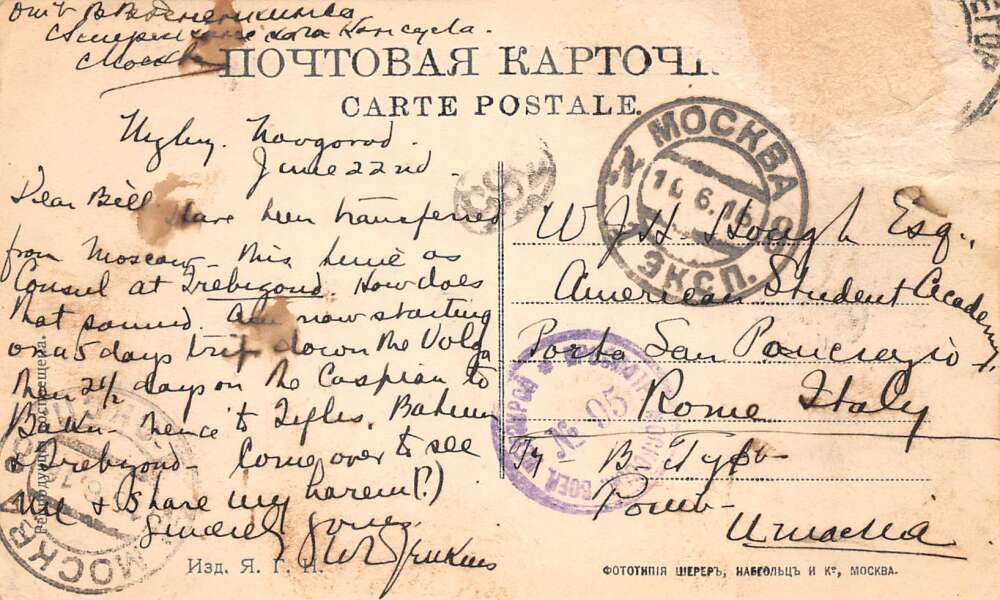 Американскаго Консула.
Москва
ПОЧТОВАЯ КАРТОЧК
CARTE POSTALE.
Nizhny. Novgorod.
June 22nd.
Dear Bill I have been transferred
from Moscow - this time as
Consul at Trebizond. How does
that sound. Am now starting
on a 5 days trip down the Volga
then 2½ days on the Caspian to
Baku - hence to Tiflis, Batum
& Trebizond - Come over to see
me & share my harem(!)
Sincerely yours
Изд. Я. Г. И.
W J H Hough Esq.,
American Student Academy,
Porta San Pancrazio
Rome Italy
Италія
ФОТОТИПІЯ ШЕРЕРЪ, НАБГОЛЬЦЪ И Кº, МОСКВА.
МОСКВА
10.6.16
ЭКСП.
МОСКВА